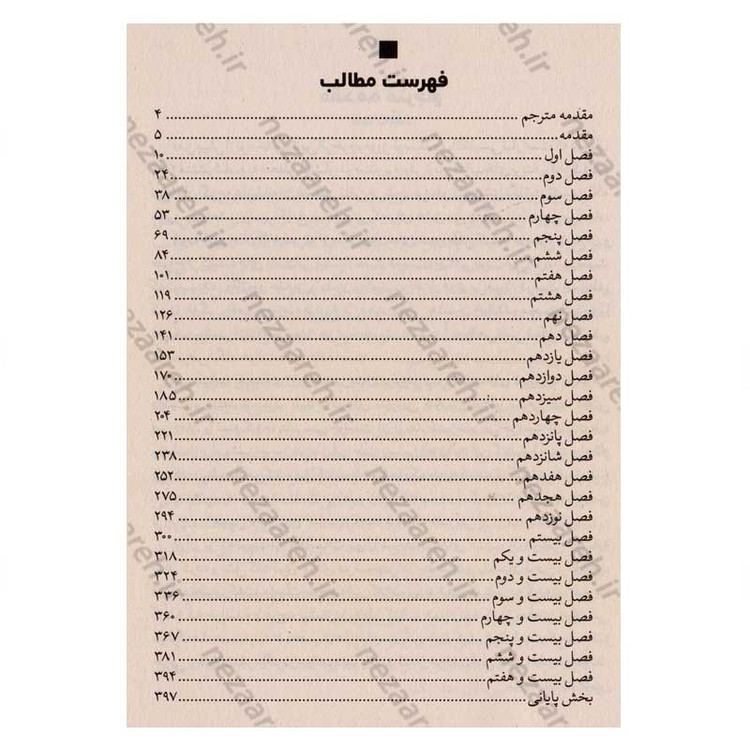 فهرست مطالب
مقدمه مترجم ........ ۴
مقدمه ........ ۵
فصل اول ........ ۱۰
فصل دوم ........ ۲۴
فصل سوم ........ ۳۸
فصل چهارم ........ ۵۳
فصل پنجم ........ ۶۹
فصل ششم ........ ۸۴
فصل هفتم ........ ۱۰۱
فصل هشتم ........ ۱۱۹
فصل نهم ........ ۱۲۶
فصل دهم ........ ۱۴۱
فصل یازدهم ........ ۱۵۳
فصل دوازدهم ........ ۱۷۰
فصل سیزدهم ........ ۱۸۵
فصل چهاردهم ........ ۲۰۴
فصل پانزدهم ........ ۲۲۱
فصل شانزدهم ........ ۲۳۸
فصل هفدهم ........ ۲۵۲
فصل هجدهم ........ ۲۷۵
فصل نوزدهم ........ ۲۹۴
فصل بیستم ........ ۳۰۰
فصل بیست و یکم ........ ۳۱۸
فصل بیست و دوم ........ ۳۲۴
فصل بیست و سوم ........ ۳۳۶
فصل بیست و چهارم ........ ۳۶۰
فصل بیست و پنجم ........ ۳۶۷
فصل بیست و ششم ........ ۳۸۱
فصل بیست و هفتم ........ ۳۹۴
بخش پایانی ........ ۳۹۷
nezaareh.ir